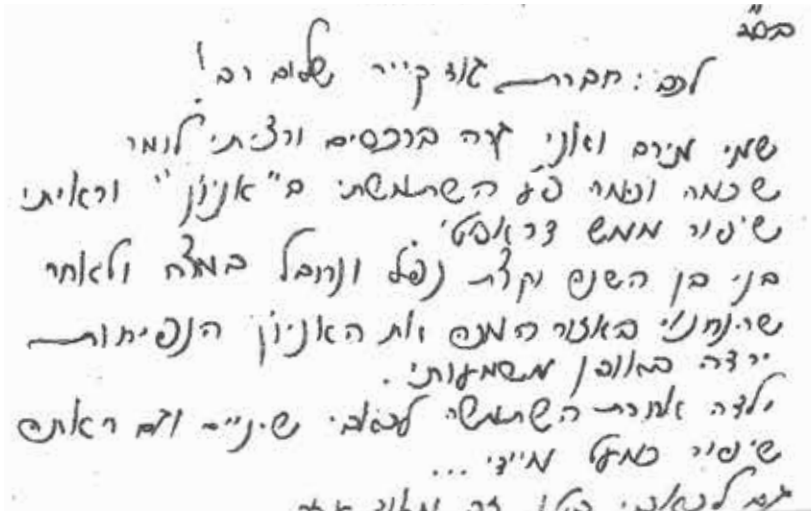 בס"ד
לכב': חברת גוד קייר שלום רב!
שמי מירם ואני גרה ברכסים ורציתי לומר
שכמה וכמה פע' השתמשתי ב"אניון" וראיתי
שיפור ממש דראסטי
בני בן השנה וקצת נפל ונחבל במצח ולאחר
שהנחתי באזור המכה את האניון הנפיחות
ירדה באופן משמעותי.
ילדה אחרת השתמשה לכאבי שיניים וגם ראתה
שיפור כמעט מיידי...
גם לכאבי זה מאוד עזר